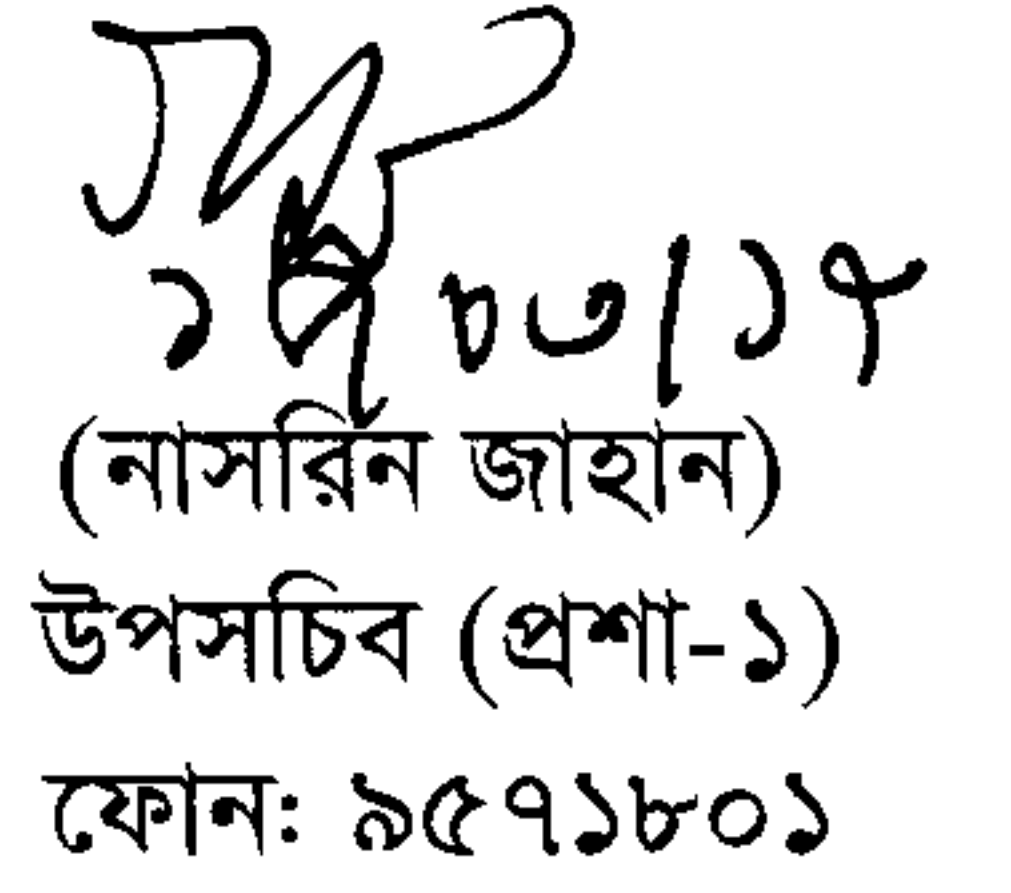 (নাসরিন জাহান)
উপসচিব (প্রশা-১)
ফোন: ৯৫৭১৮০১